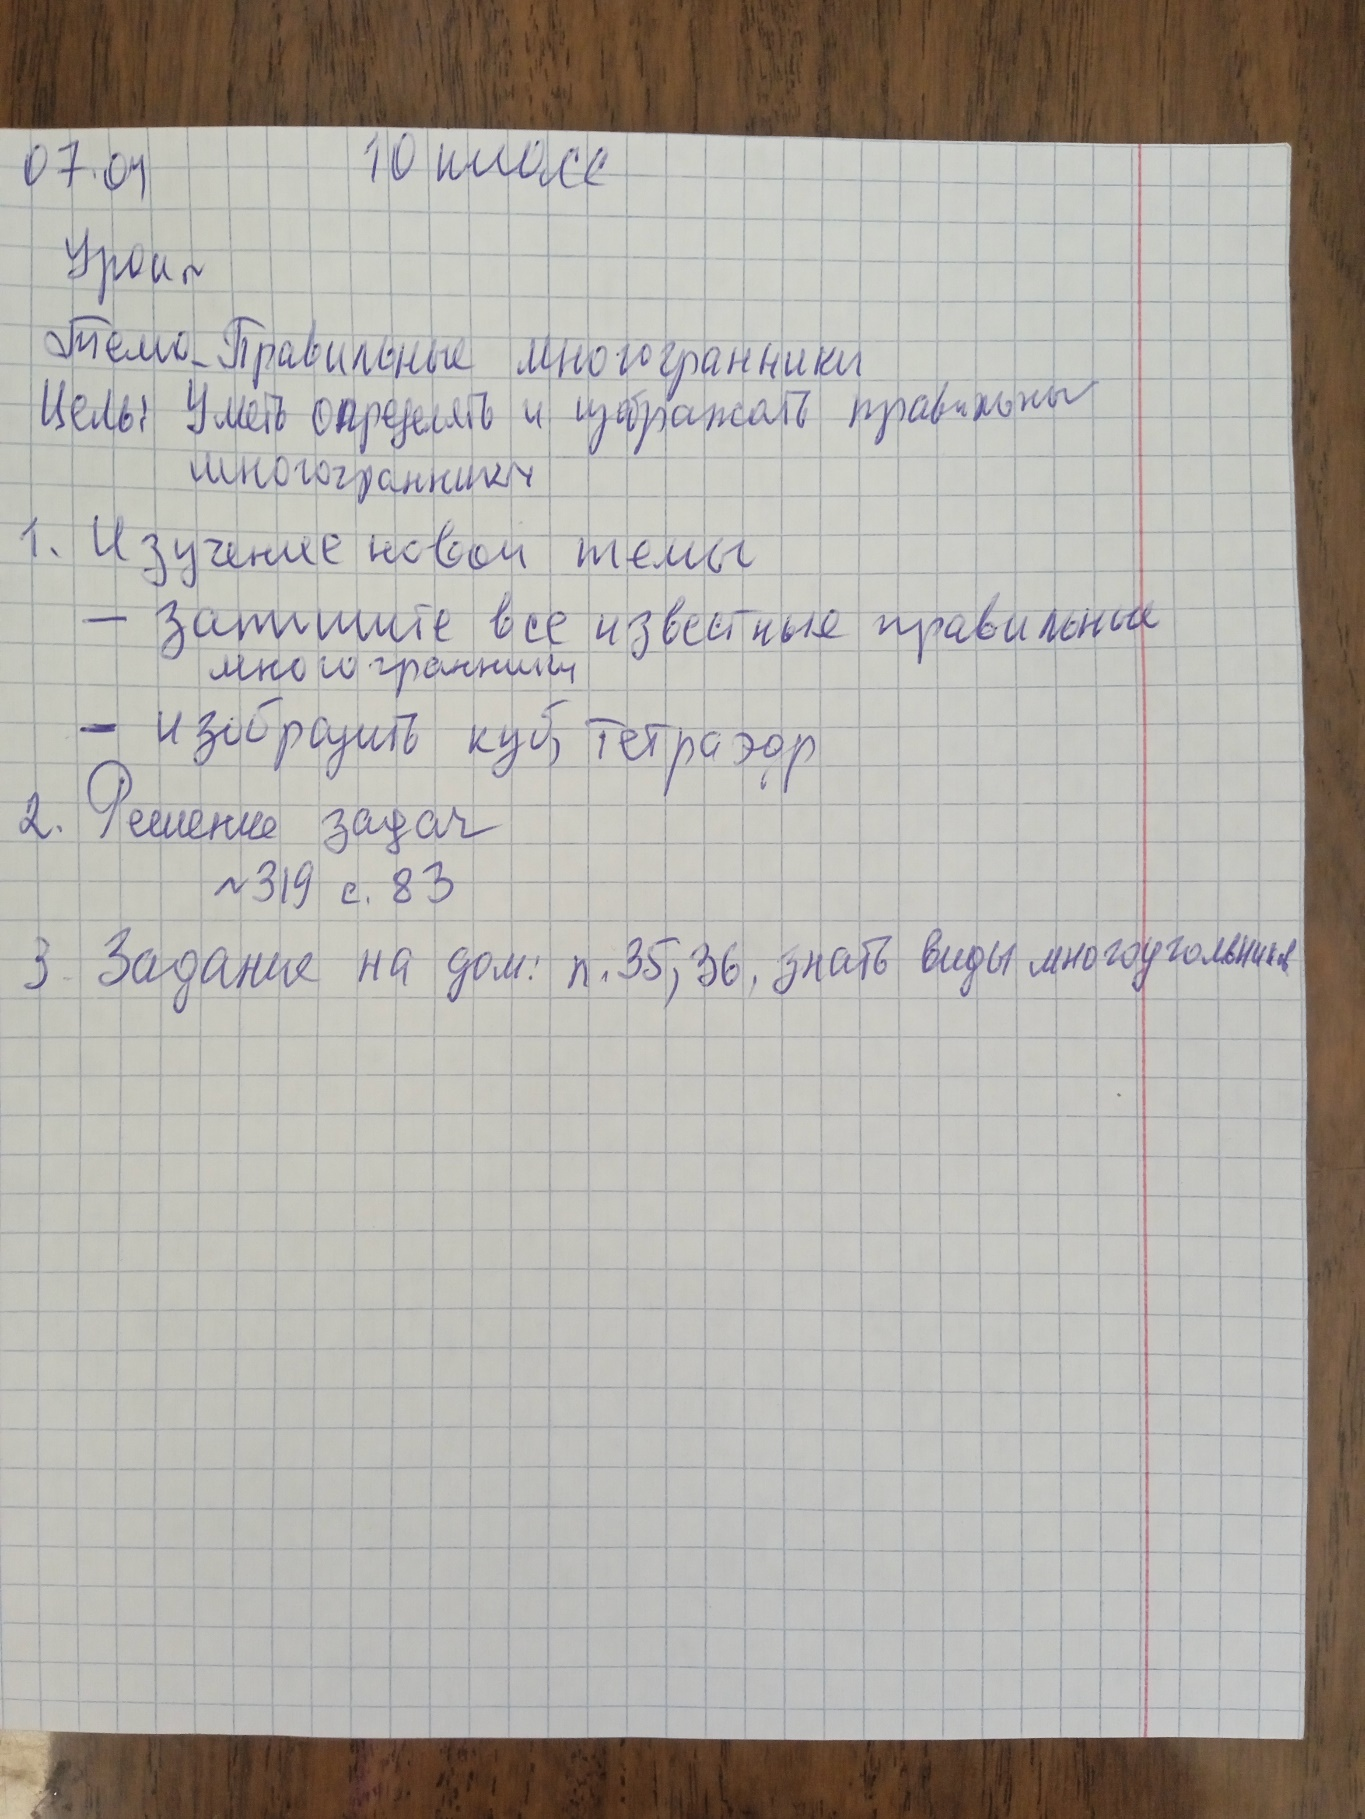 07.04 10 класс
Урок №
Тема: Правильные многогранники
Цель: Уметь определять и изображать правильны
многогранники
1. Изучение новой темы
– Запишите все известные правильные
многогранники
– изобразить куб, тетраэдр
2. Решение задач
№319 с. 83
3. Задание на дом: п. 35, 36, знать виды многоугольников